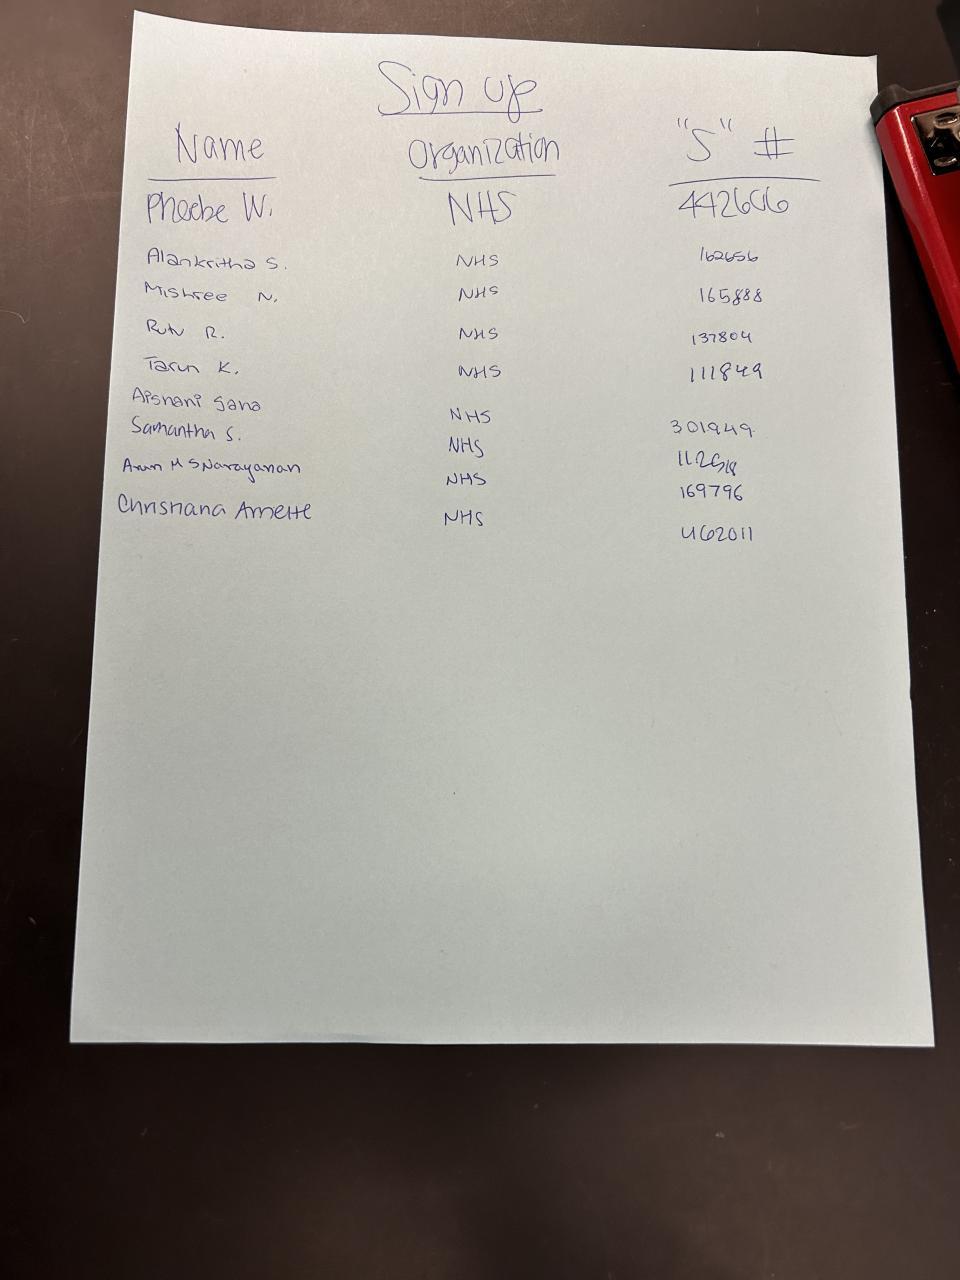 Sign up
Name Organization "S" #
Phoebe W. NHS 442606
Alankritha S. NHS 162656
Mishree N. NHS 165888
Rutv R. NHS 137804
Tarun K. NHS 111849
NHS 301949
Samantha S. NHS
Arun M SNarayanan NHS 169796
Christiana Arnette NHS 462011